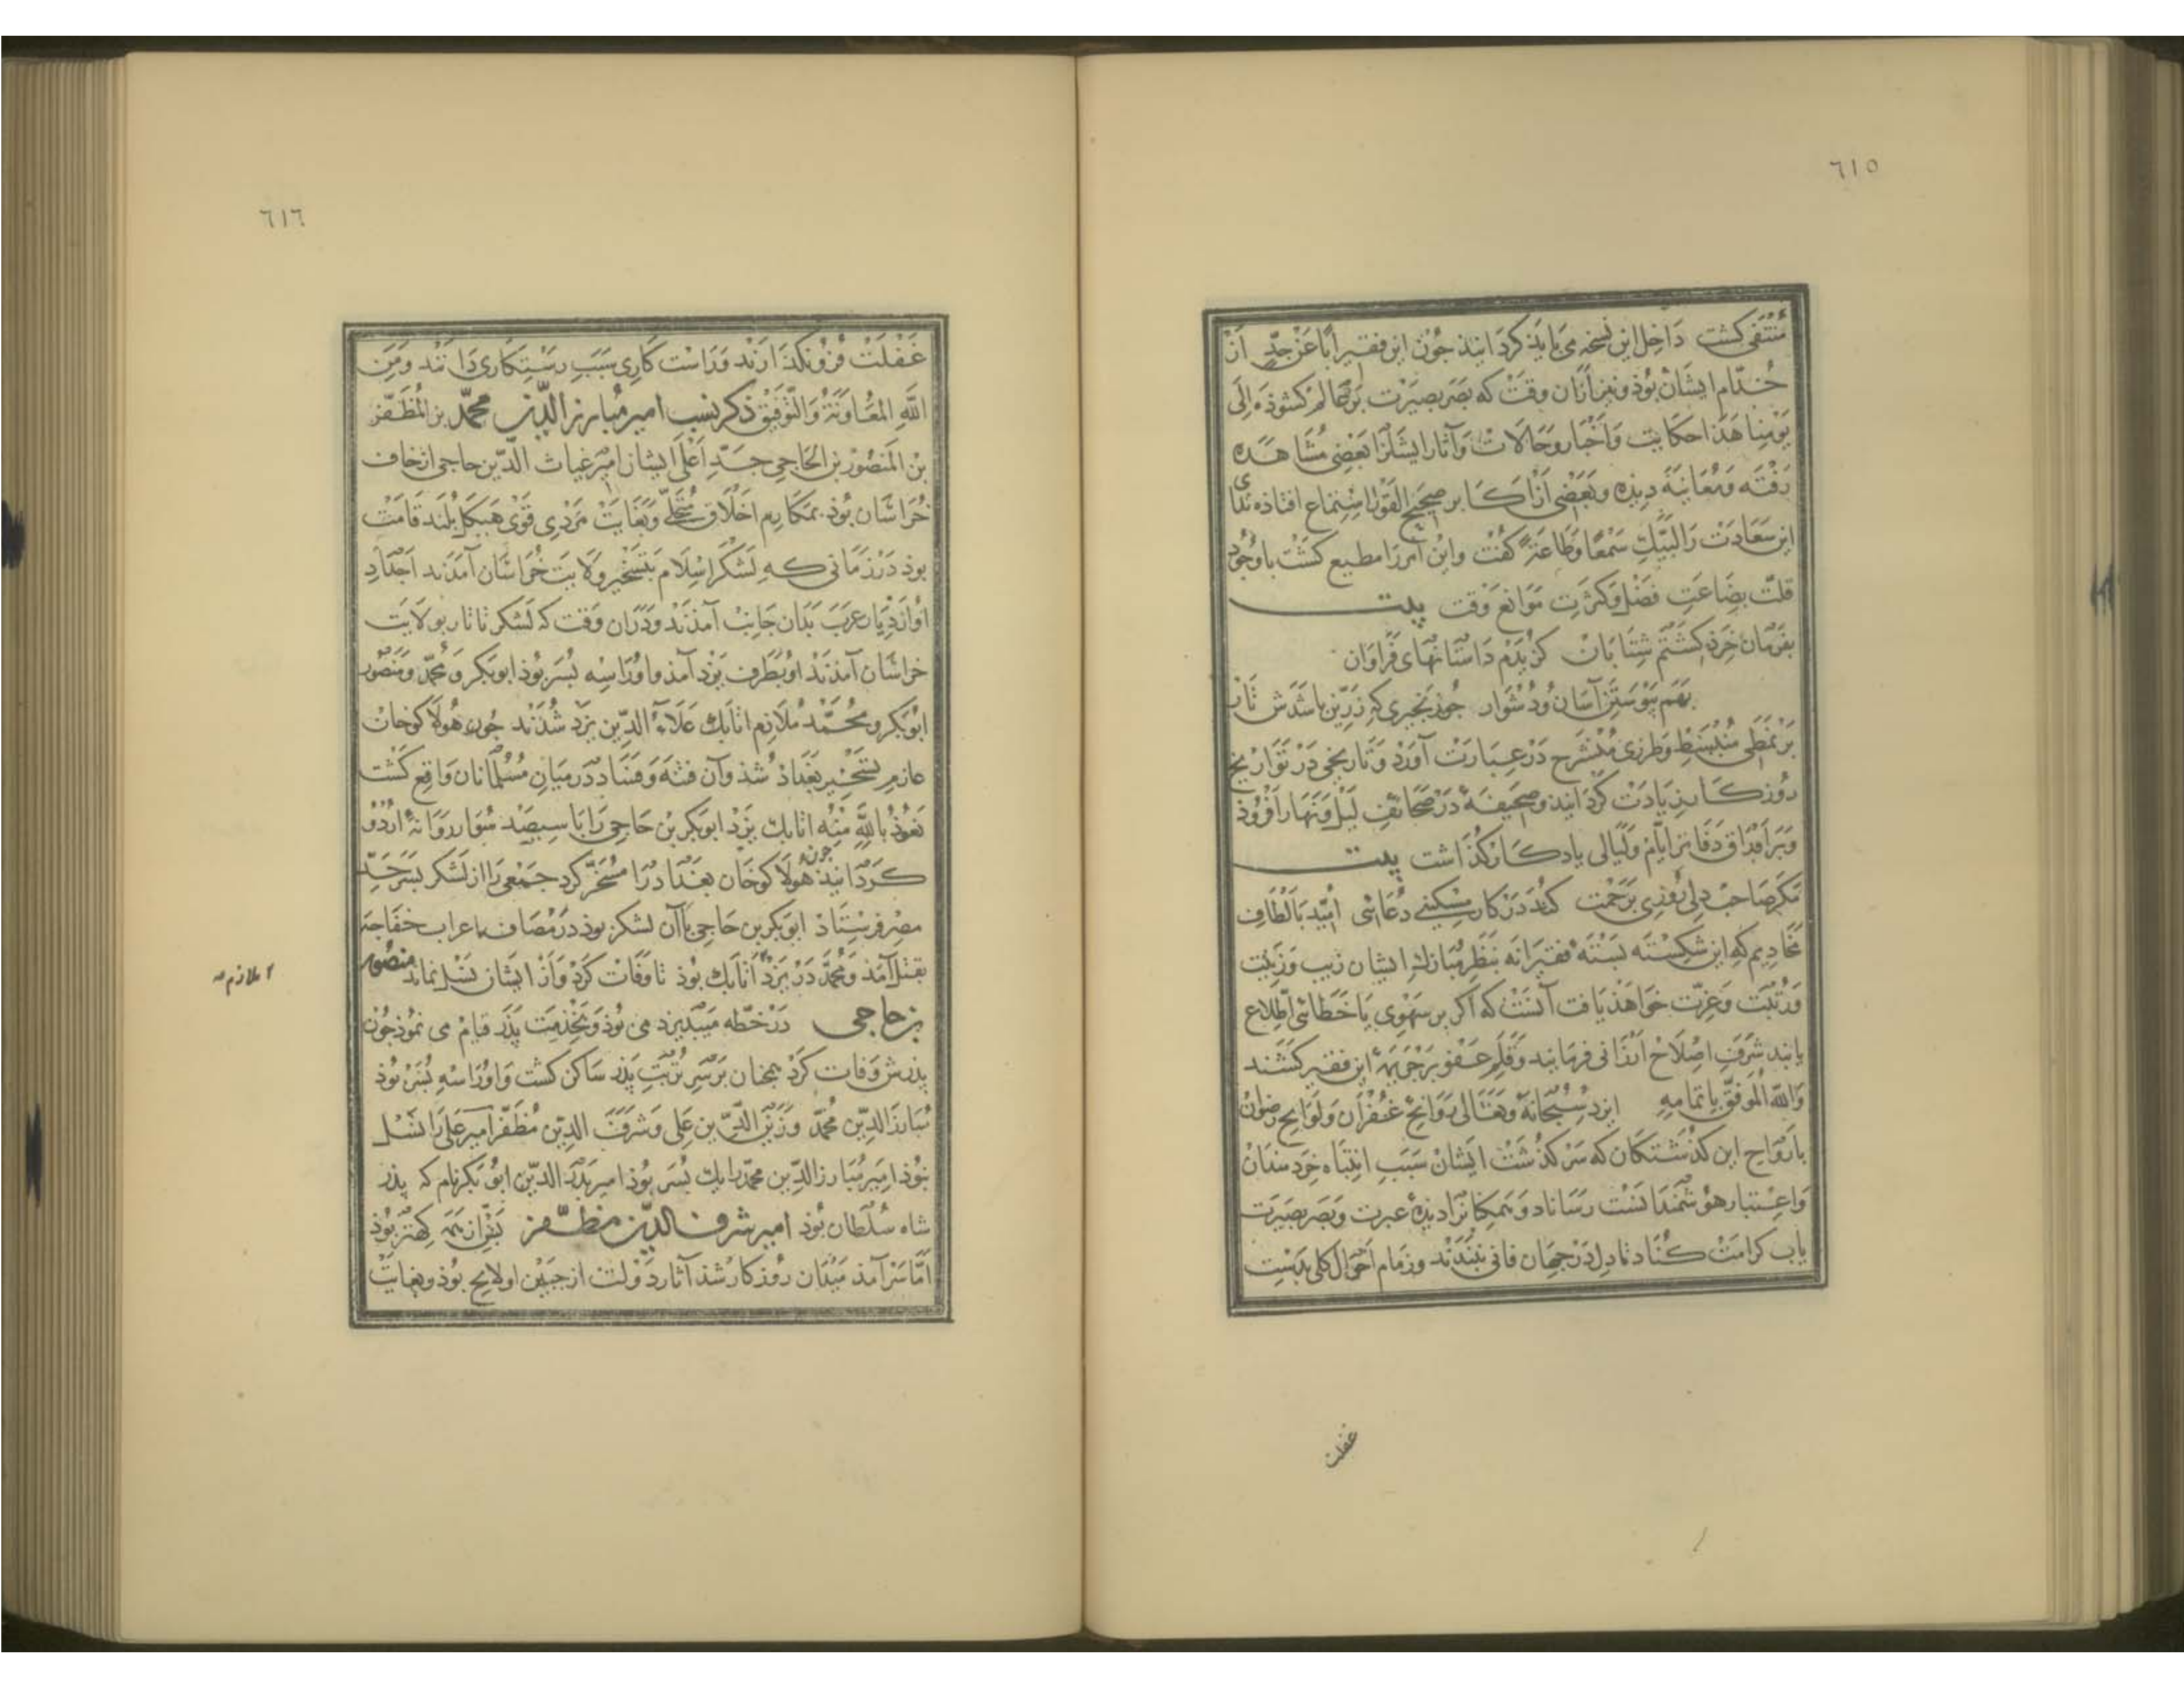 ٦١٥
منتفی کشت داخل این نسخه می باید کردانید جون این فقیر اباً عن جدٍّ از
خدّام ایشان بوذ و نیز از ان وقت که بصر بصیرت بر عالم کشوذه الی
یومنا هذا حکایت و اخبار و حالات و آثار ایشانرا بعضی مشاهده
رفته و معاینه دیذه و بعضی از اکابر صحیح القول استماع افتاذه ندای
این سعادت را لبیک سمعاً وطاعةً کفت واین امر را مطیع کشت باوجود
قلّت بضاعت فضل وکثرت موانع وقت بیت
بفرمان خرد کشتم شتابان کزیدم داستانهای فراوان
بهم پیوستن آسان ودشوار جو زنجیری که زرّین باشدش تار
بر نمطی منبسط وطرزی منشرح در عبارت آورد وتاریخی در تواریخ
روزکار زیادت کردانید وصحیفهٔ در صحائف لیل ونهار افزوذ
وبر اوراق دفاتر ایّام ولیالی یادکار کذاشت بیت
مکر صاحب دلی روزی برحمت کند در کار مسکینی دعائی امید بالطاف
مخادیم که این شکسته بسته فقیرانه بنظر مبارک ایشان زیب وزینت
ورتبت وعزّت خواهذ یافت آنست که اکر بر سهوی یا خطائی اطّلاع
یابند شرف اصلاح ارزانی فرمایند وقلم عفو بر جریمهٔ این فقیر کشند
والله الموفق باتمامه ایزد سبحانه وتعالی روائح غفران ولوایح رضوان
بارواح این کذشتکان که سرکذشت ایشان سبب انتباه خردمندان
واعتبار هوشمندانست رساناد وهمکانرا دیدهٔ عبرت وبصر بصیرت
باب کرامت کناد تا دل در جهان فانی نبندند وزمام احوال کلی بدست
غفلت
٦١٦
غفلت فرو نکذارند وراست کاری سبب رستکاری دانند ومن
الله المعاونة والتوفیق ذکر نسب امیر مبارز الدین محمد بن المظفر
بن المنصور بن الحاجی جدّ اعلی ایشان امیر غیاث الدین حاجی از خاف
خراسان بوذ بمکارم اخلاق متحلّی وبغایت مردی قوی هیکل بلند قامت
بوذ در زمانی که لشکر اسلام بتسخیر ولایت خراسان آمدند اجداد
او از دیار عرب بدان جانب آمذند ودران وقت که لشکر تاتار بولایت
خراسان آمذند او بطرف یزد آمذ واورا سه پسر بوذ ابوبکر ومحمّد ومنصور
ابوبکر ومحمّد ملازم اتابک علاء الدین یزد شدند جون هولاکوخان
عازم تسخیر بغداذ شذ وآن فتنه وفساد در میان مسلمانان واقع کشت
نعوذ بالله منه اتابک یزد ابوبکر بن حاجی را با سیصد سوار روانهٔ اردو
کردانید جون هولاکوخان بغداد را مسخر کرد جمعی را از لشکر بسر حدّ
مصر فرستاذ ابوبکر بن حاجی با آن لشکر بوذ در مصاف با اعراب خفاجه
بقتل آمذ ومحمّد در یزد اتابک بوذ تا وفات کرد واز ایشان نسل نماند منصور
ملازم
بن حاجی در خطه میبد یزد می بوذ وبخدمت پذر قیام می نموذ جون
پذرش وفات کرد همجنان بر سر تربت پذر ساکن کشت واورا سه پسر بوذ
مبارز الدین محمّد وزین الدین علی وشرف الدین مظفّر امیر علی را نسل
نبوذ امیر مبارز الدین محمّد را یک پسر بوذ امیر بدر الدین ابوبکر نام که پذر
شاه سلطان بوذ امیر شرف الدین مظفّر بسن از همه کهتر بوذ
امّا سر آمذ میدان روزکار شذ آثار دولت از جبین او لایح بوذ وبغایت